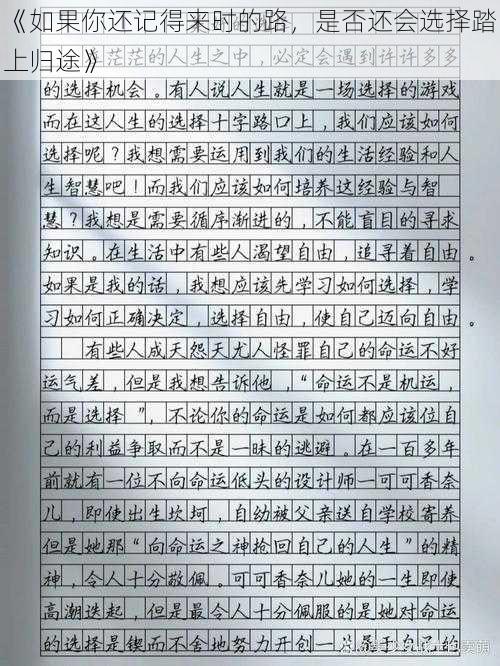 《如果你还记得来时的路，是否还会选择踏
上归途》
茫茫的人生之中，必定会遇到许许多多
的选择机会。有人说人生就是一场选择的游戏
而在这人生的选择十字路口上，我们应该如何
选择呢？我想需要运用到我们的生活经验和人
生智慧吧！而我们应该如何培养这经验与智
慧？我想是需要循序渐进的，不能盲目的寻求
知识。在生活中有些人渴望自由，追寻着自由。
如果是我的话，我想应该先学习如何选择，学
习如何正确决定，选择自由，使自己迈向自由。
有些人成天怨天尤人怪罪自己的命运不好
运气差，但是我想告诉他，“命运不是机运，
而是选择”，不论你的命运是如何都应该位自
己的利益争取而不是一昧的逃避。在一百多年
前就有一位不向命运低头的设计师一可可香奈
儿，即使出生坎坷，自幼被父亲送自学校寄养
但是她那“向命运之神抢回自己的人生”的精
神，令人十分敬佩。可可香奈儿她的一生即使
高潮迭起，但是最令人十分佩服的是她对命运
的选择是锲而不舍地努力开创一